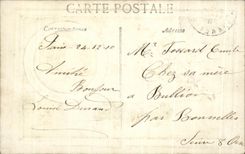 CARTE POSTALE
Correspondance
Adresse
Paris 24-12-10
Amitié
Bonjour
Louise Durand
Mr Tossard Emile
Chez sa mère
à Bullion
par Bonnelles
Seine & Oise